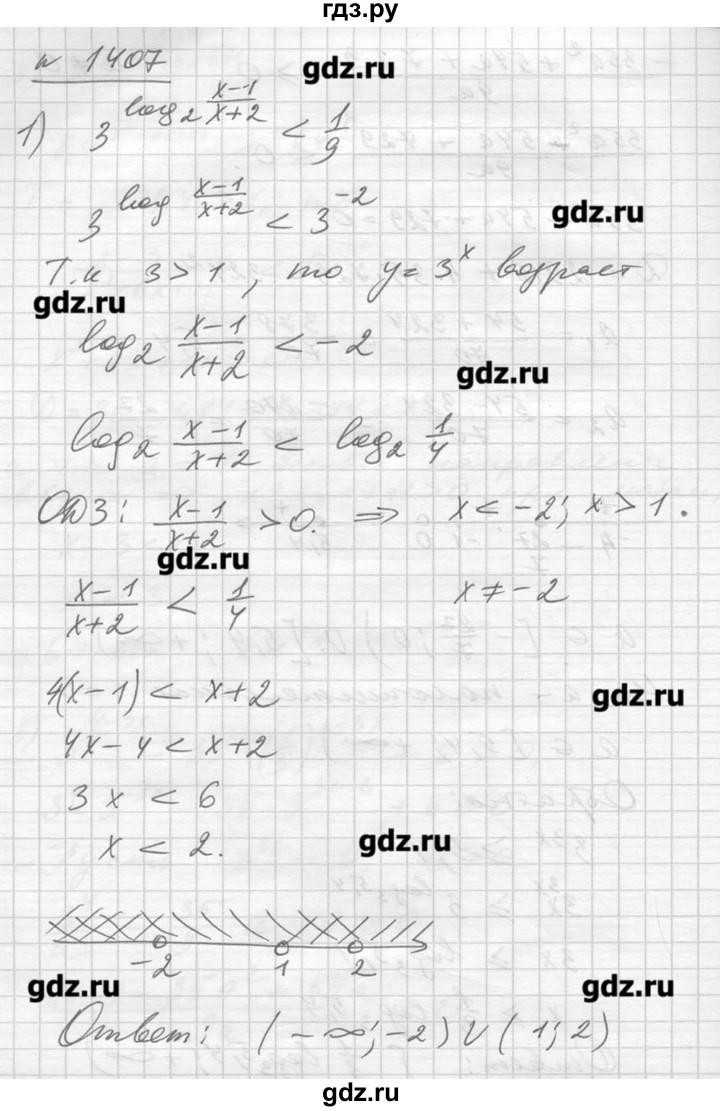 гдз.ру
№ 1407
gdz.ru
1) 3^{log_2 \frac{x-1}{x+2}} < \frac{1}{9}
3^{log \frac{x-1}{x+2}} < 3^{-2}
gdz.ru
Т.к 3 > 1, то y = 3^x возраст
gdz.ru
log_2 \frac{x-1}{x+2} < -2
gdz.ru
log_2 \frac{x-1}{x+2} < log_2 \frac{1}{4}
ОДЗ: \frac{x-1}{x+2} > 0. ⇒ x < -2; x > 1.
gdz.ru
\frac{x-1}{x+2} < \frac{1}{4} x ≠ -2
4(x-1) < x+2
gdz.ru
4x-4 < x+2
3x < 6
x < 2.
gdz.ru
-2 1 2
gdz.ru gdz.ru
Ответ: (-∞; -2) ∪ (1; 2)
gdz.ru